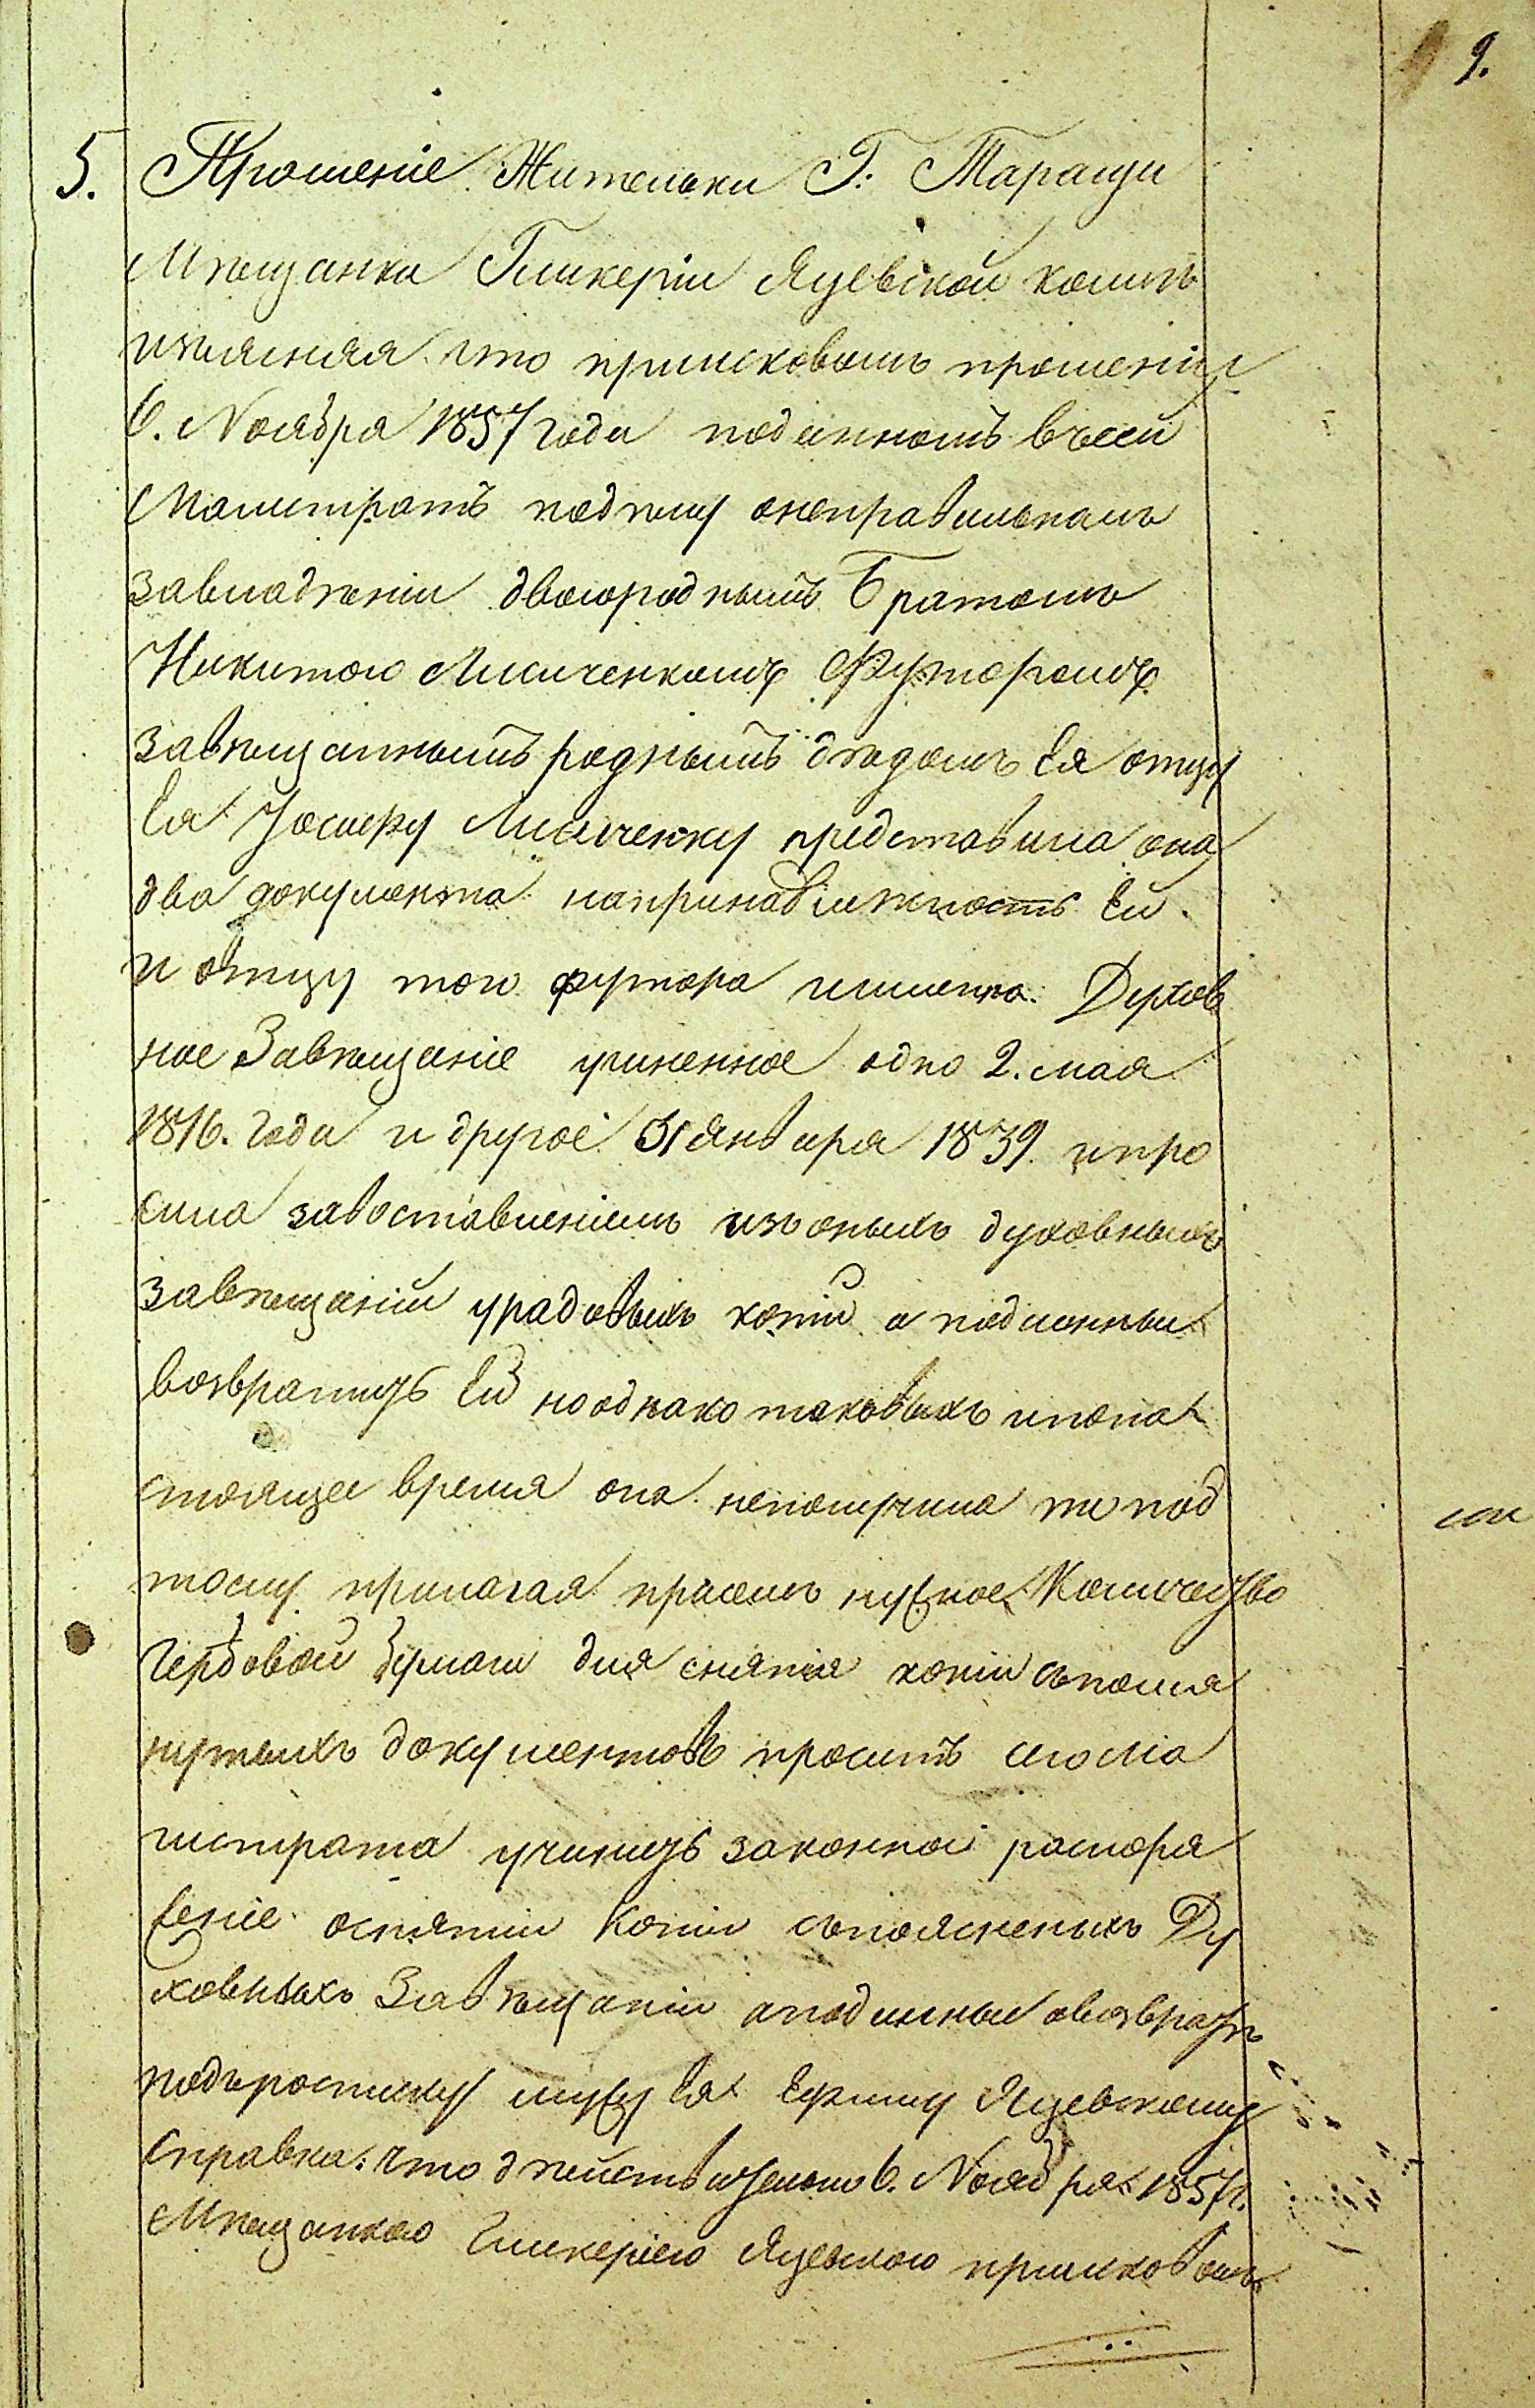 9.
5. Прошеніе Жительки Г: Таращи
Мѣщанки Гликеріи Яцевской коимъ
изъясняя что приисковомъ прошеніи
6. Ноября 1857 года поданномъ всей
Магистратъ подѣлу онеправильномъ
завладѣніи двоюроднымъ Братомъ
Никитою Лисиченкомъ Футоромъ
завѣщаннымъ роднымъ дѣдомъ Ея отцу
Ея Іосифу Лисиченку представила она
два документа напринадлежность Ей
и отцу того футора именно: Духов
ное Завѣщаніе учиненное одно 2. мая
1816. года и другое 31 Января 1839. ипро
сила заоставленіемъ изъоныхъ духовныхъ
завѣщаній урадовыхъ копій а подлинныи
возвратить Ей нооднако таковыхъ ипона
стоящее время она неполучила то под
тому прилагая присемъ нужное Количество
гербовой бумаги для снятія копіи съпомя
нутыхъ документовъ проситъ сего Ма
гистрата учинить законное распоря
женіе оснятіи Копіи съпоясненыхъ Ду
ховныхъ Завѣщаніи аподлинныи овозвратѣ
подъросписку мужу Ея Ефиму Яцевскому
Справка: что дѣйствительно 6. Ноября 1857 г.
Мѣщанкою Гликеріею Яцевскою приисковомъ